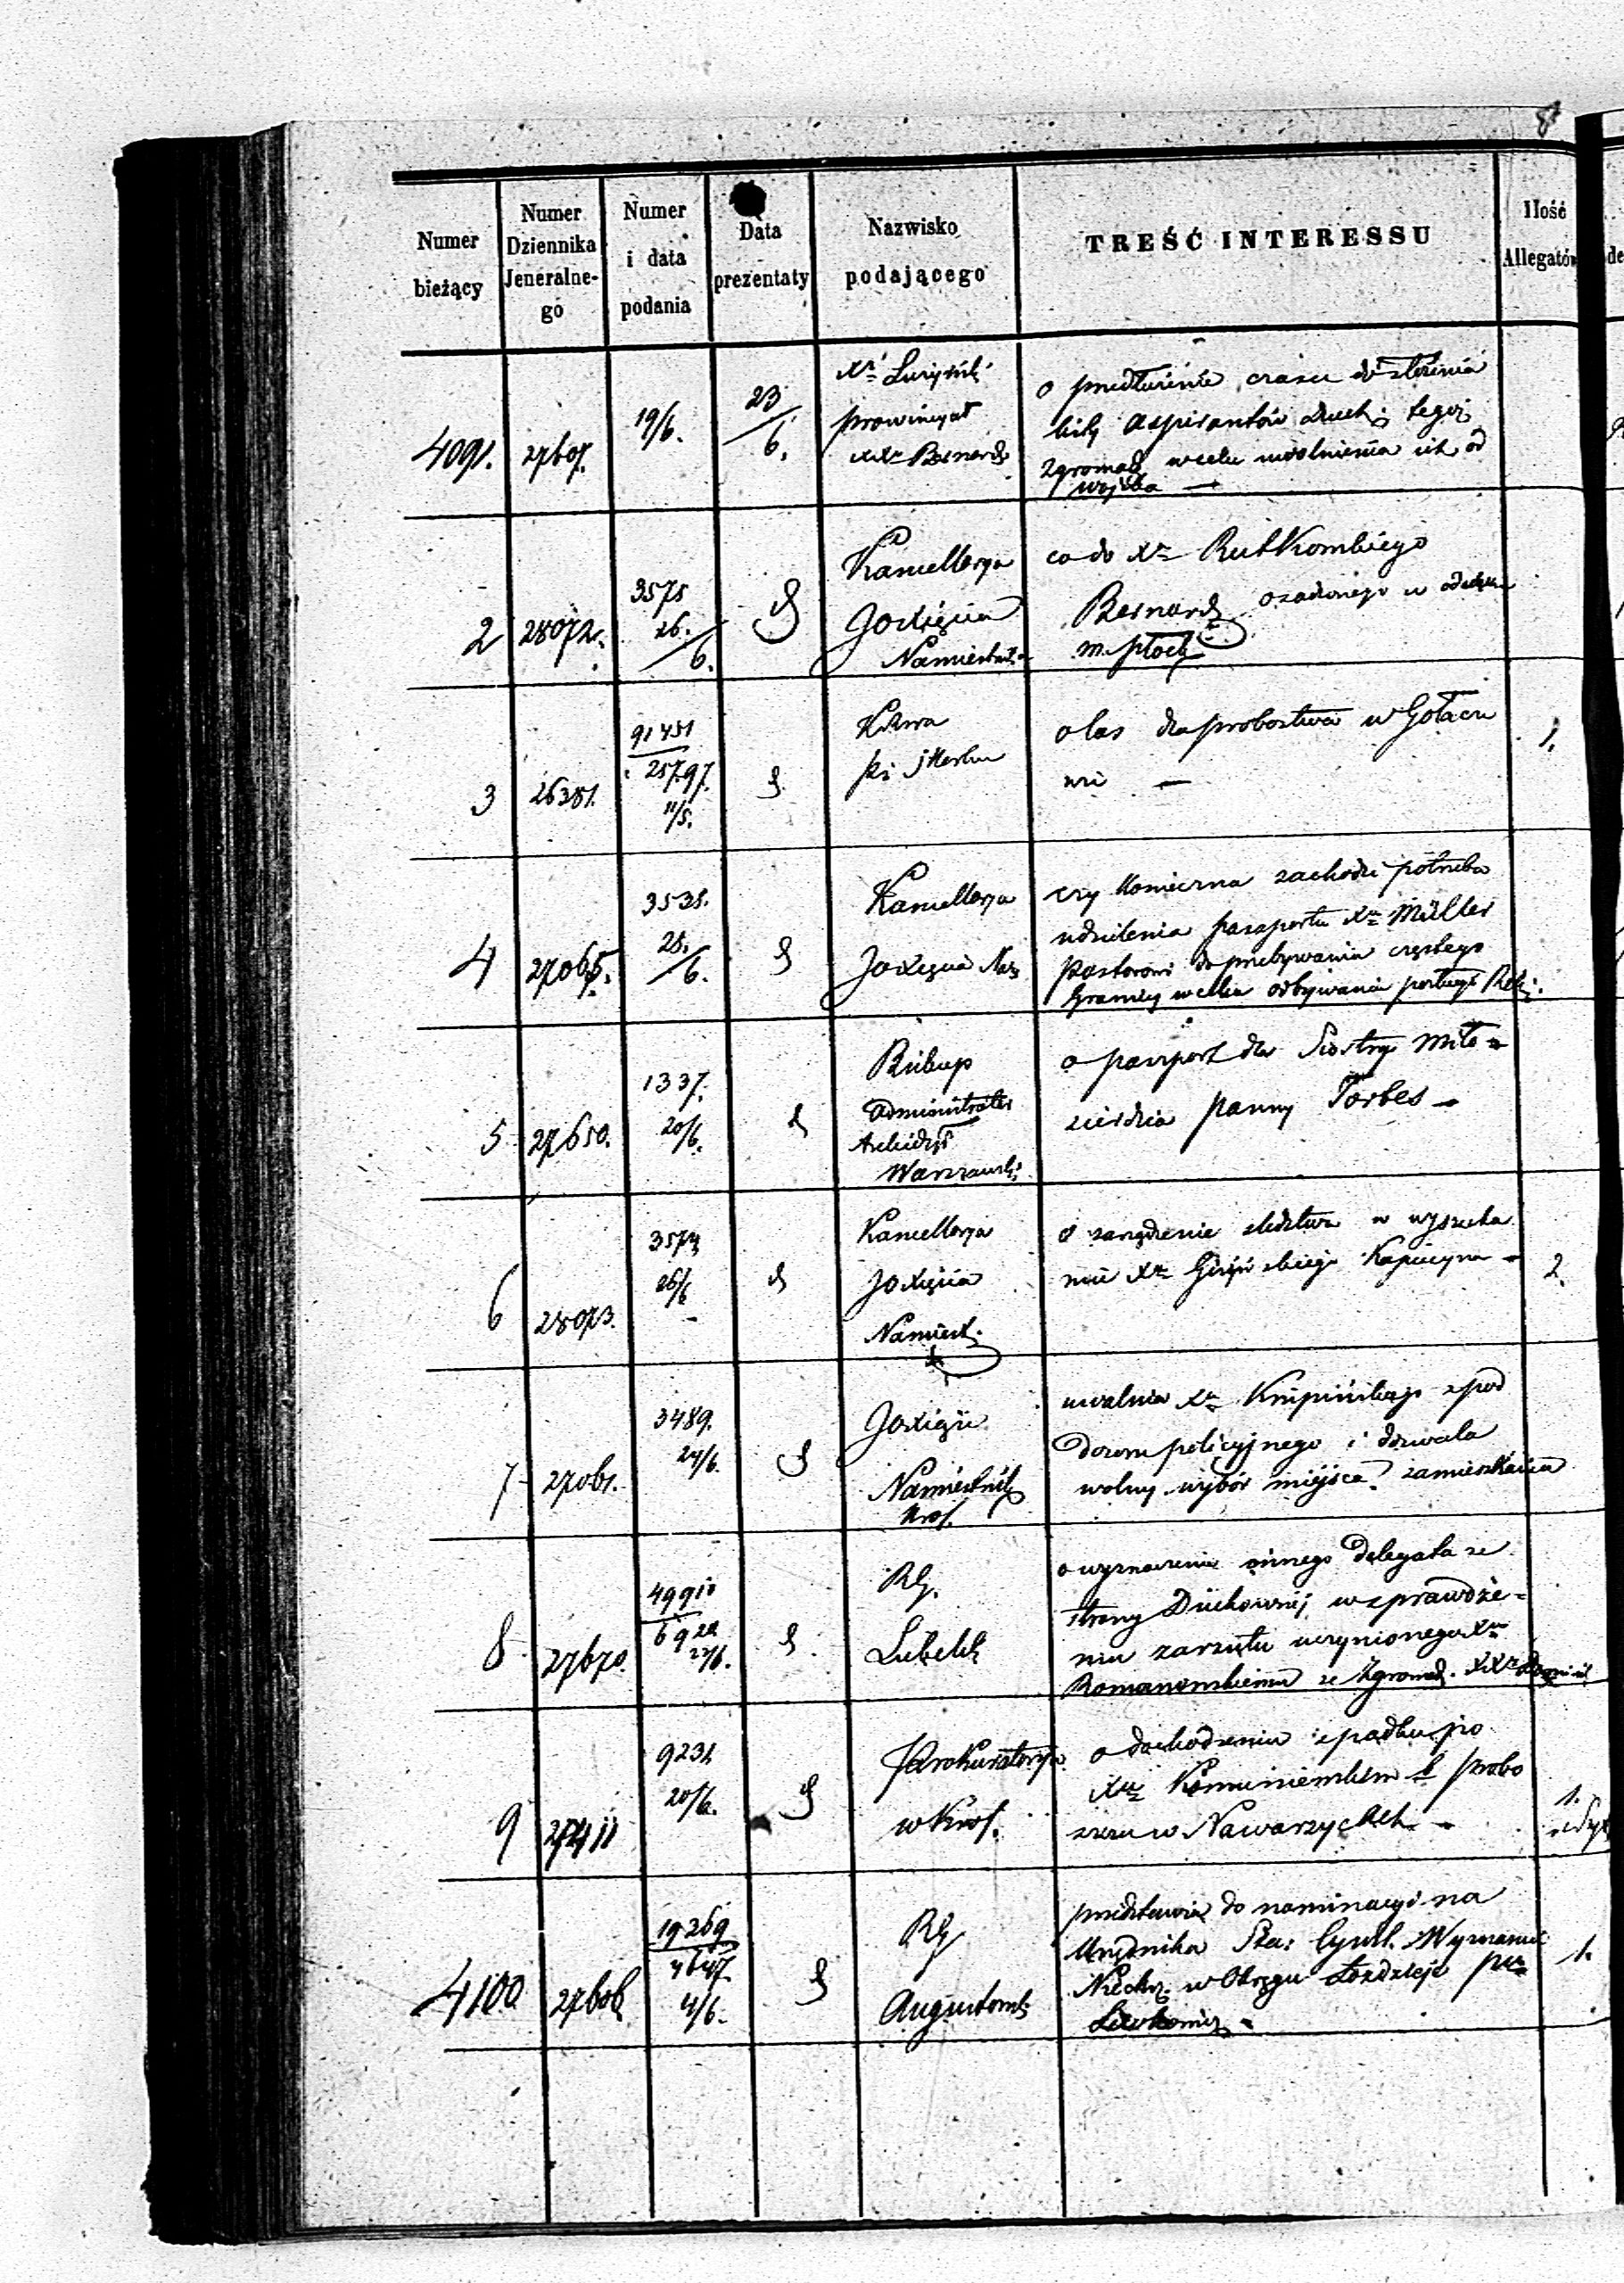 8
Numer bieżący
Numer Dziennika Jeneralne-go
Numer i data podania
Data prezentaty
Nazwisko podającego
TREŚĆ INTERESSU
Ilość Allegatów
4091.
19/6.
23/6.
Prowincyał
XXr Bernard
o przedłużenie czasu do złożenia
listy Aspirantów Duch: tegoż
Zgromad w celu uwolnienia ich od
wojska —
2
28072.
3575
26./6.
Kancellarya
JO Xięcia
Namiestnik
co do Xr Rutkowskiego
Bernard osadzonego w
m. Płock
3
26381.
91451
25797.
11/5.
o las dla probostwa w Gołaczo
wie —
1.
4
27065.
3535.
28./6.
Kancellarya
JO Xięcia Na
czy konieczna zachodzi potrzeba
udzielenia paszportu Xr Müller
Pastorowi do przebywania częstego
Granicy w celu odbywania posługi Reli:
5
27650.
1337.
20/6.
Biskup
Administrator
Archidyec
Warszawsk:
o paszport dla Siostry Miło-
sierdzia Panny Forbes —
6
28073.
3574
26/6
Kancellarya
JO Xięcia
Namiest.
o zarządzenie śledztwa w wyszuka
niu Xr Kapucyna —
2.
7
3489.
24/6.
JO Xiąże
Namiestnik
Król.
uwalnia Xr Krupińskiego z pod
dozoru policyjnego i dozwala
wolny wybór miejsca zamieszkania
8
27670.
49910
6922
27/6.
RG.
Lubelsk
o wyznaczenie innego Delegata ze
strony Duchownej w sprawdze-
niu zarzutu uczynionego Xr
Romanowskiemu ze Zgromad. XXr Domini
9
27411
9231.
20/6.
Prokuratorya
w Król.
o dochodzeniu spadku po
Xr b probo
szczu w Nawarzycach. —
1.
4100
27606
19269
4647.
4/6.
RG
Augustows:
przedstawia do nominacyi na
Urzędnika Sta: Cywil. Wyznania
Niechrz. w Okręgu Łozdzieje
1.